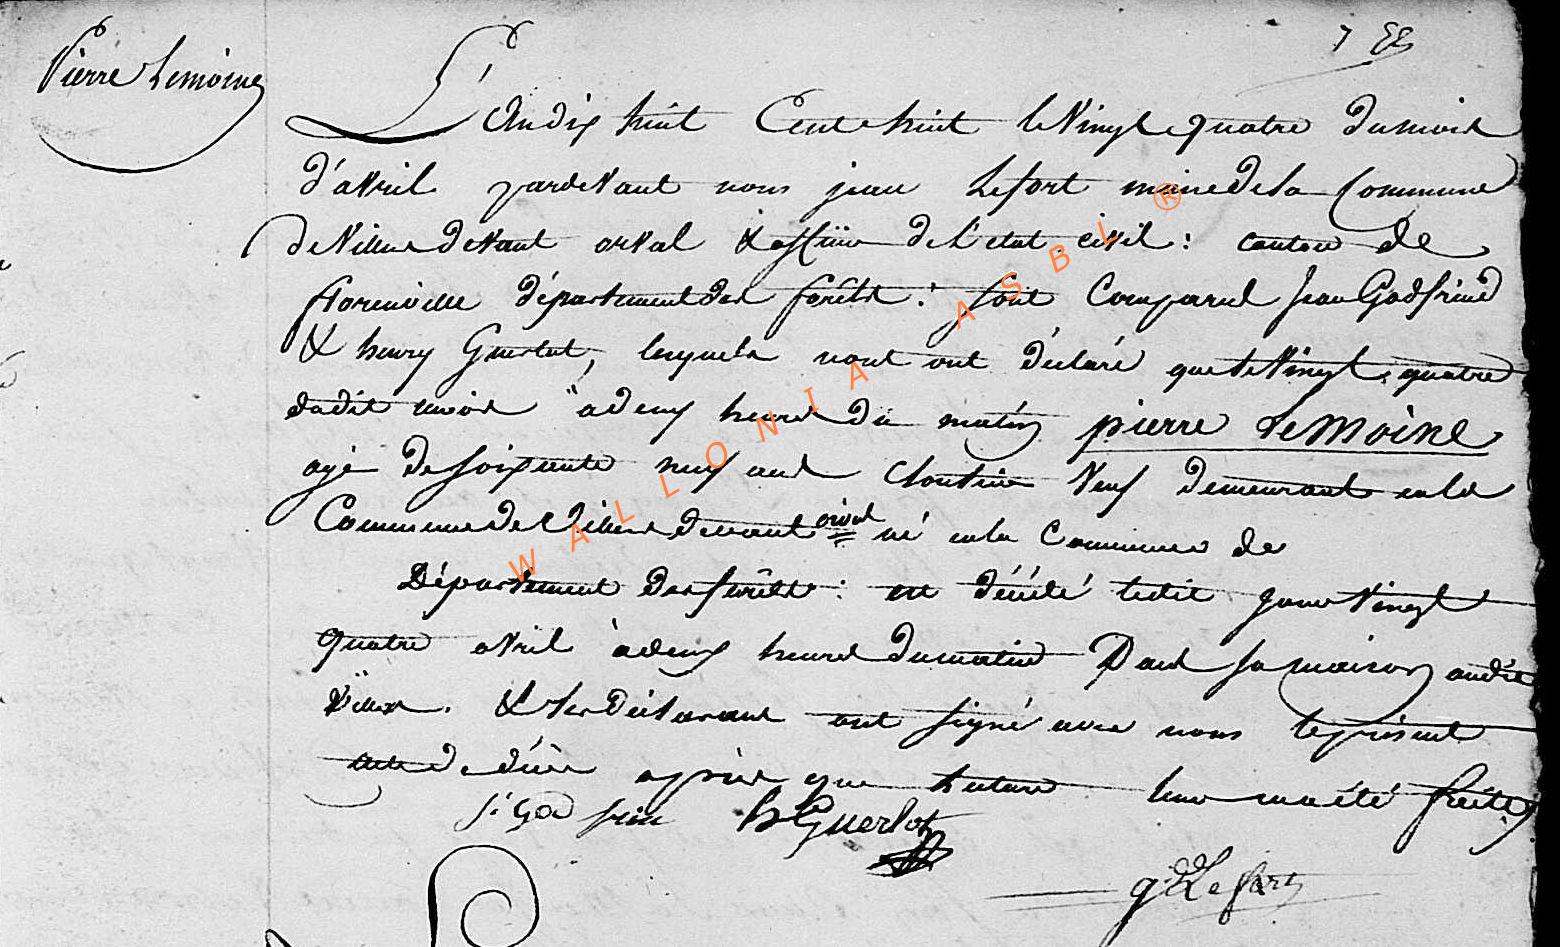 Pierre Lemoine
L'An dix huit Cent huit le Vingt quatre du mois
d'avril pardevant nous jean Lefort maire de la Commune
de Villers devant orval & officier de l'etat civil : canton de
florenville département des forêts : sont Comparus Jean Godfrind
& henry Guerlot, lesquels nous ont déclaré que le Vingt quatre
dudit mois a deux heures du matin pierre Lemoine
agé de soixante neuf ans Veuf demeurant en la
Commune de Villers devant orval né en la Commune de
Département des forêts : est décédé ledit jour Vingt
quatre avril à deux heures du matin Dans sa maison audit
Villers . & les Déclarants ont signé avec nous le présent
acte de décès après que lecture leur en a été faite
h Guerlot
Lefort
WALLONIA ASBL ®